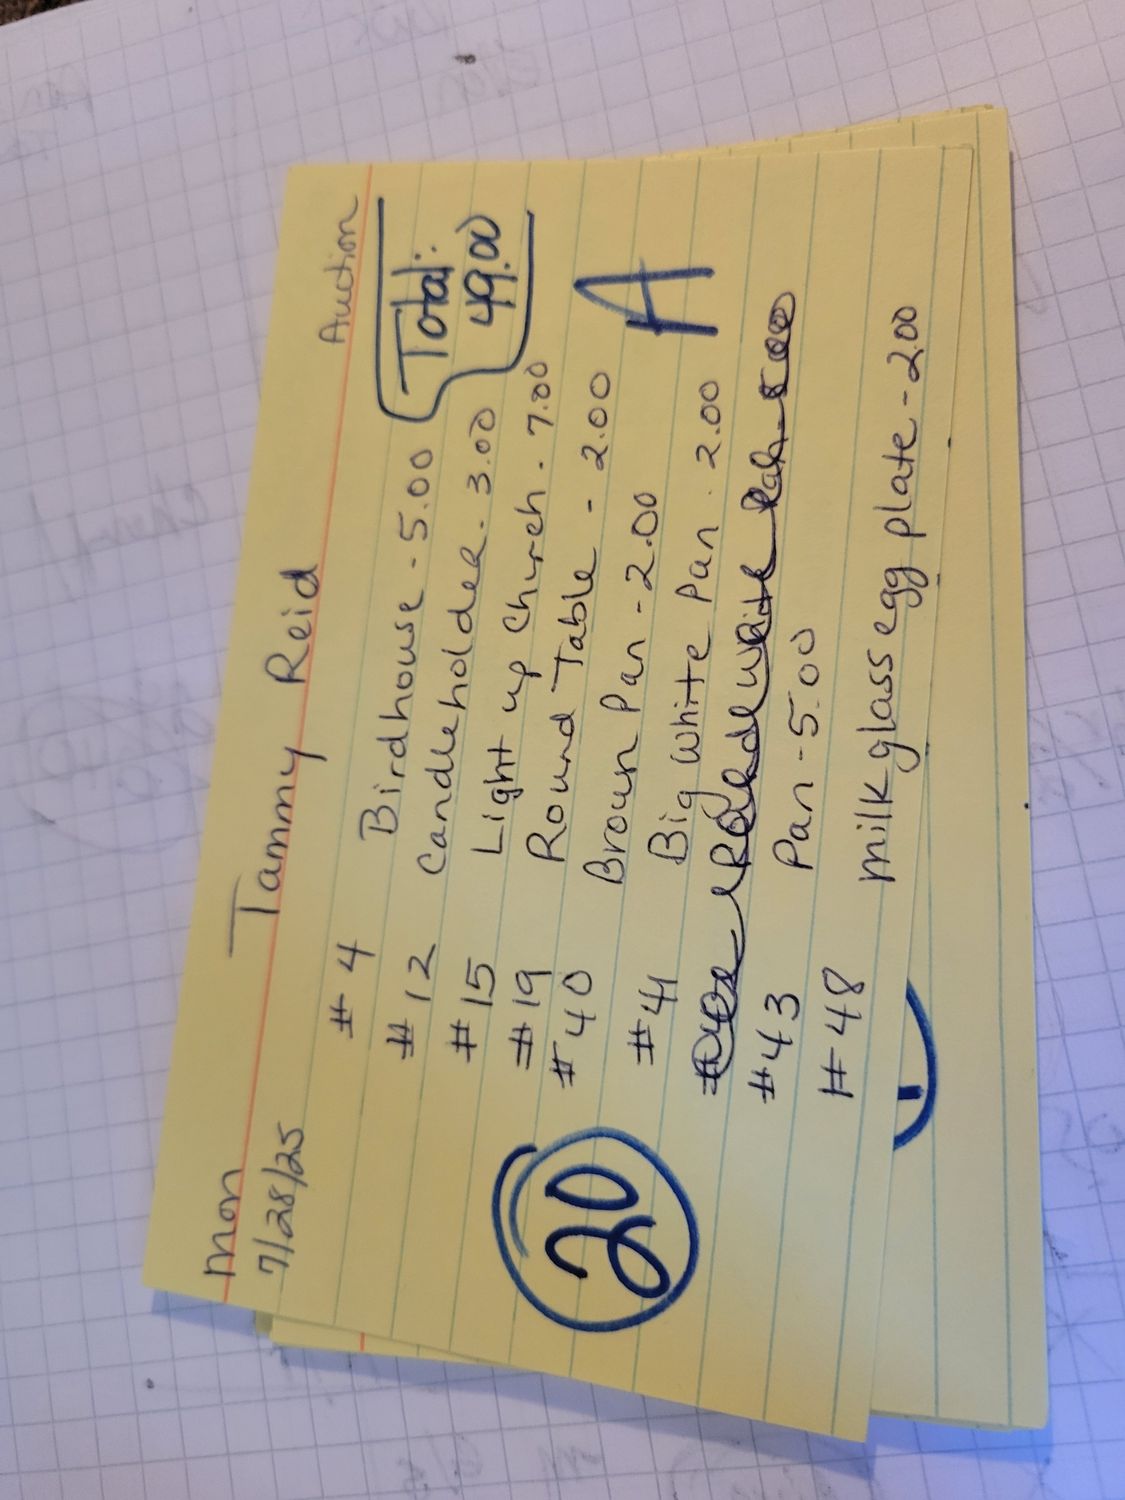 Mon
7/28/25
Tammy Reid
Auction
Total:
49.00
# 4 Birdhouse - 5.00
# 12 Candleholder - 3.00
# 15 Light up Church - 7.00
# 19 Round Table - 2.00
# 40 Broun Pan - 2.00
# 41 Big White Pan - 2.00
# 43 Pan - 5.00
# 48 milk glass egg plate - 2.00
20
A